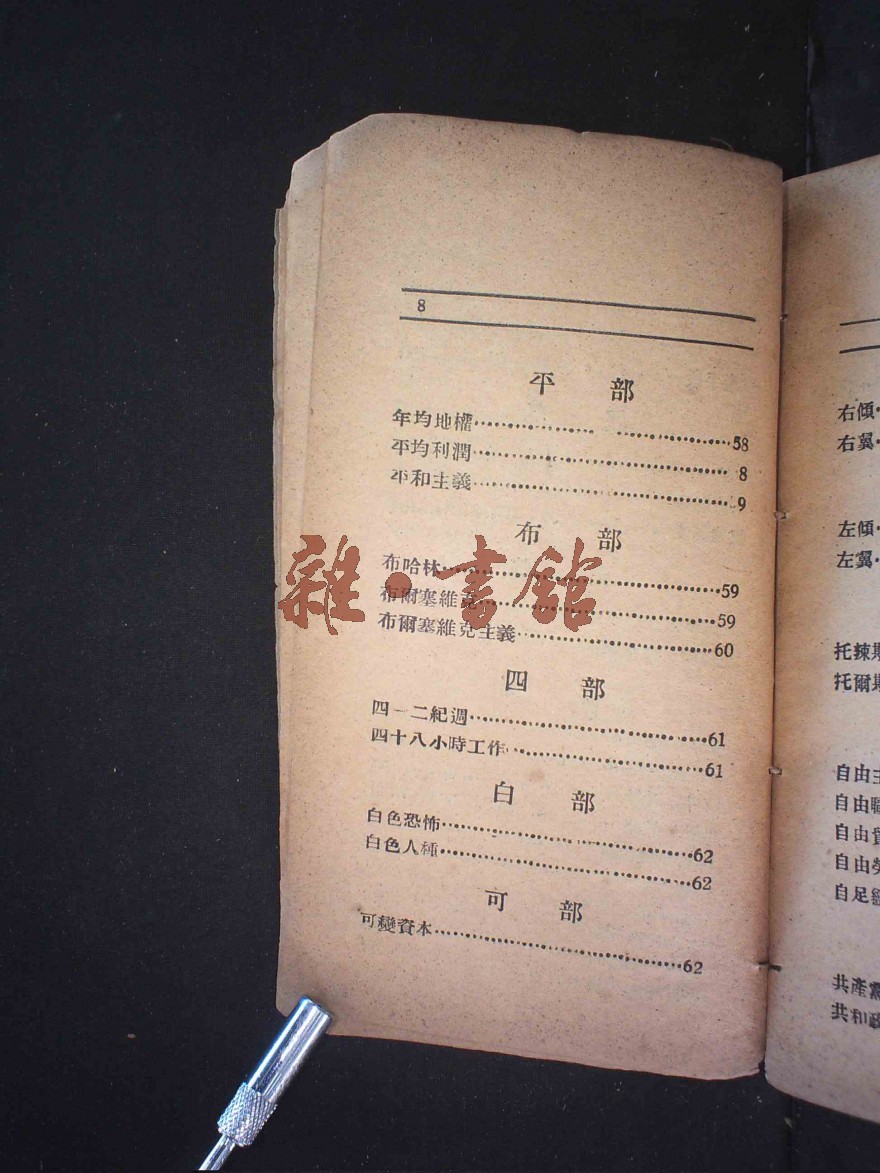 8
平 部
年均地權⋯⋯58
平均利潤⋯⋯8
平和主義⋯⋯9
布 部
布哈林⋯⋯59
布爾塞維克⋯⋯59
布爾塞維克主義⋯⋯60
四 部
四一二紀週⋯⋯61
四十八小時工作⋯⋯61
白 部
白色恐怖⋯⋯62
白色人種⋯⋯62
可 部
可變資本⋯⋯62
雜·書館
右傾
右翼
左傾
左翼
托辣
托爾
自由主
自由職
自由
自由勞
自足
共產黨
共和政